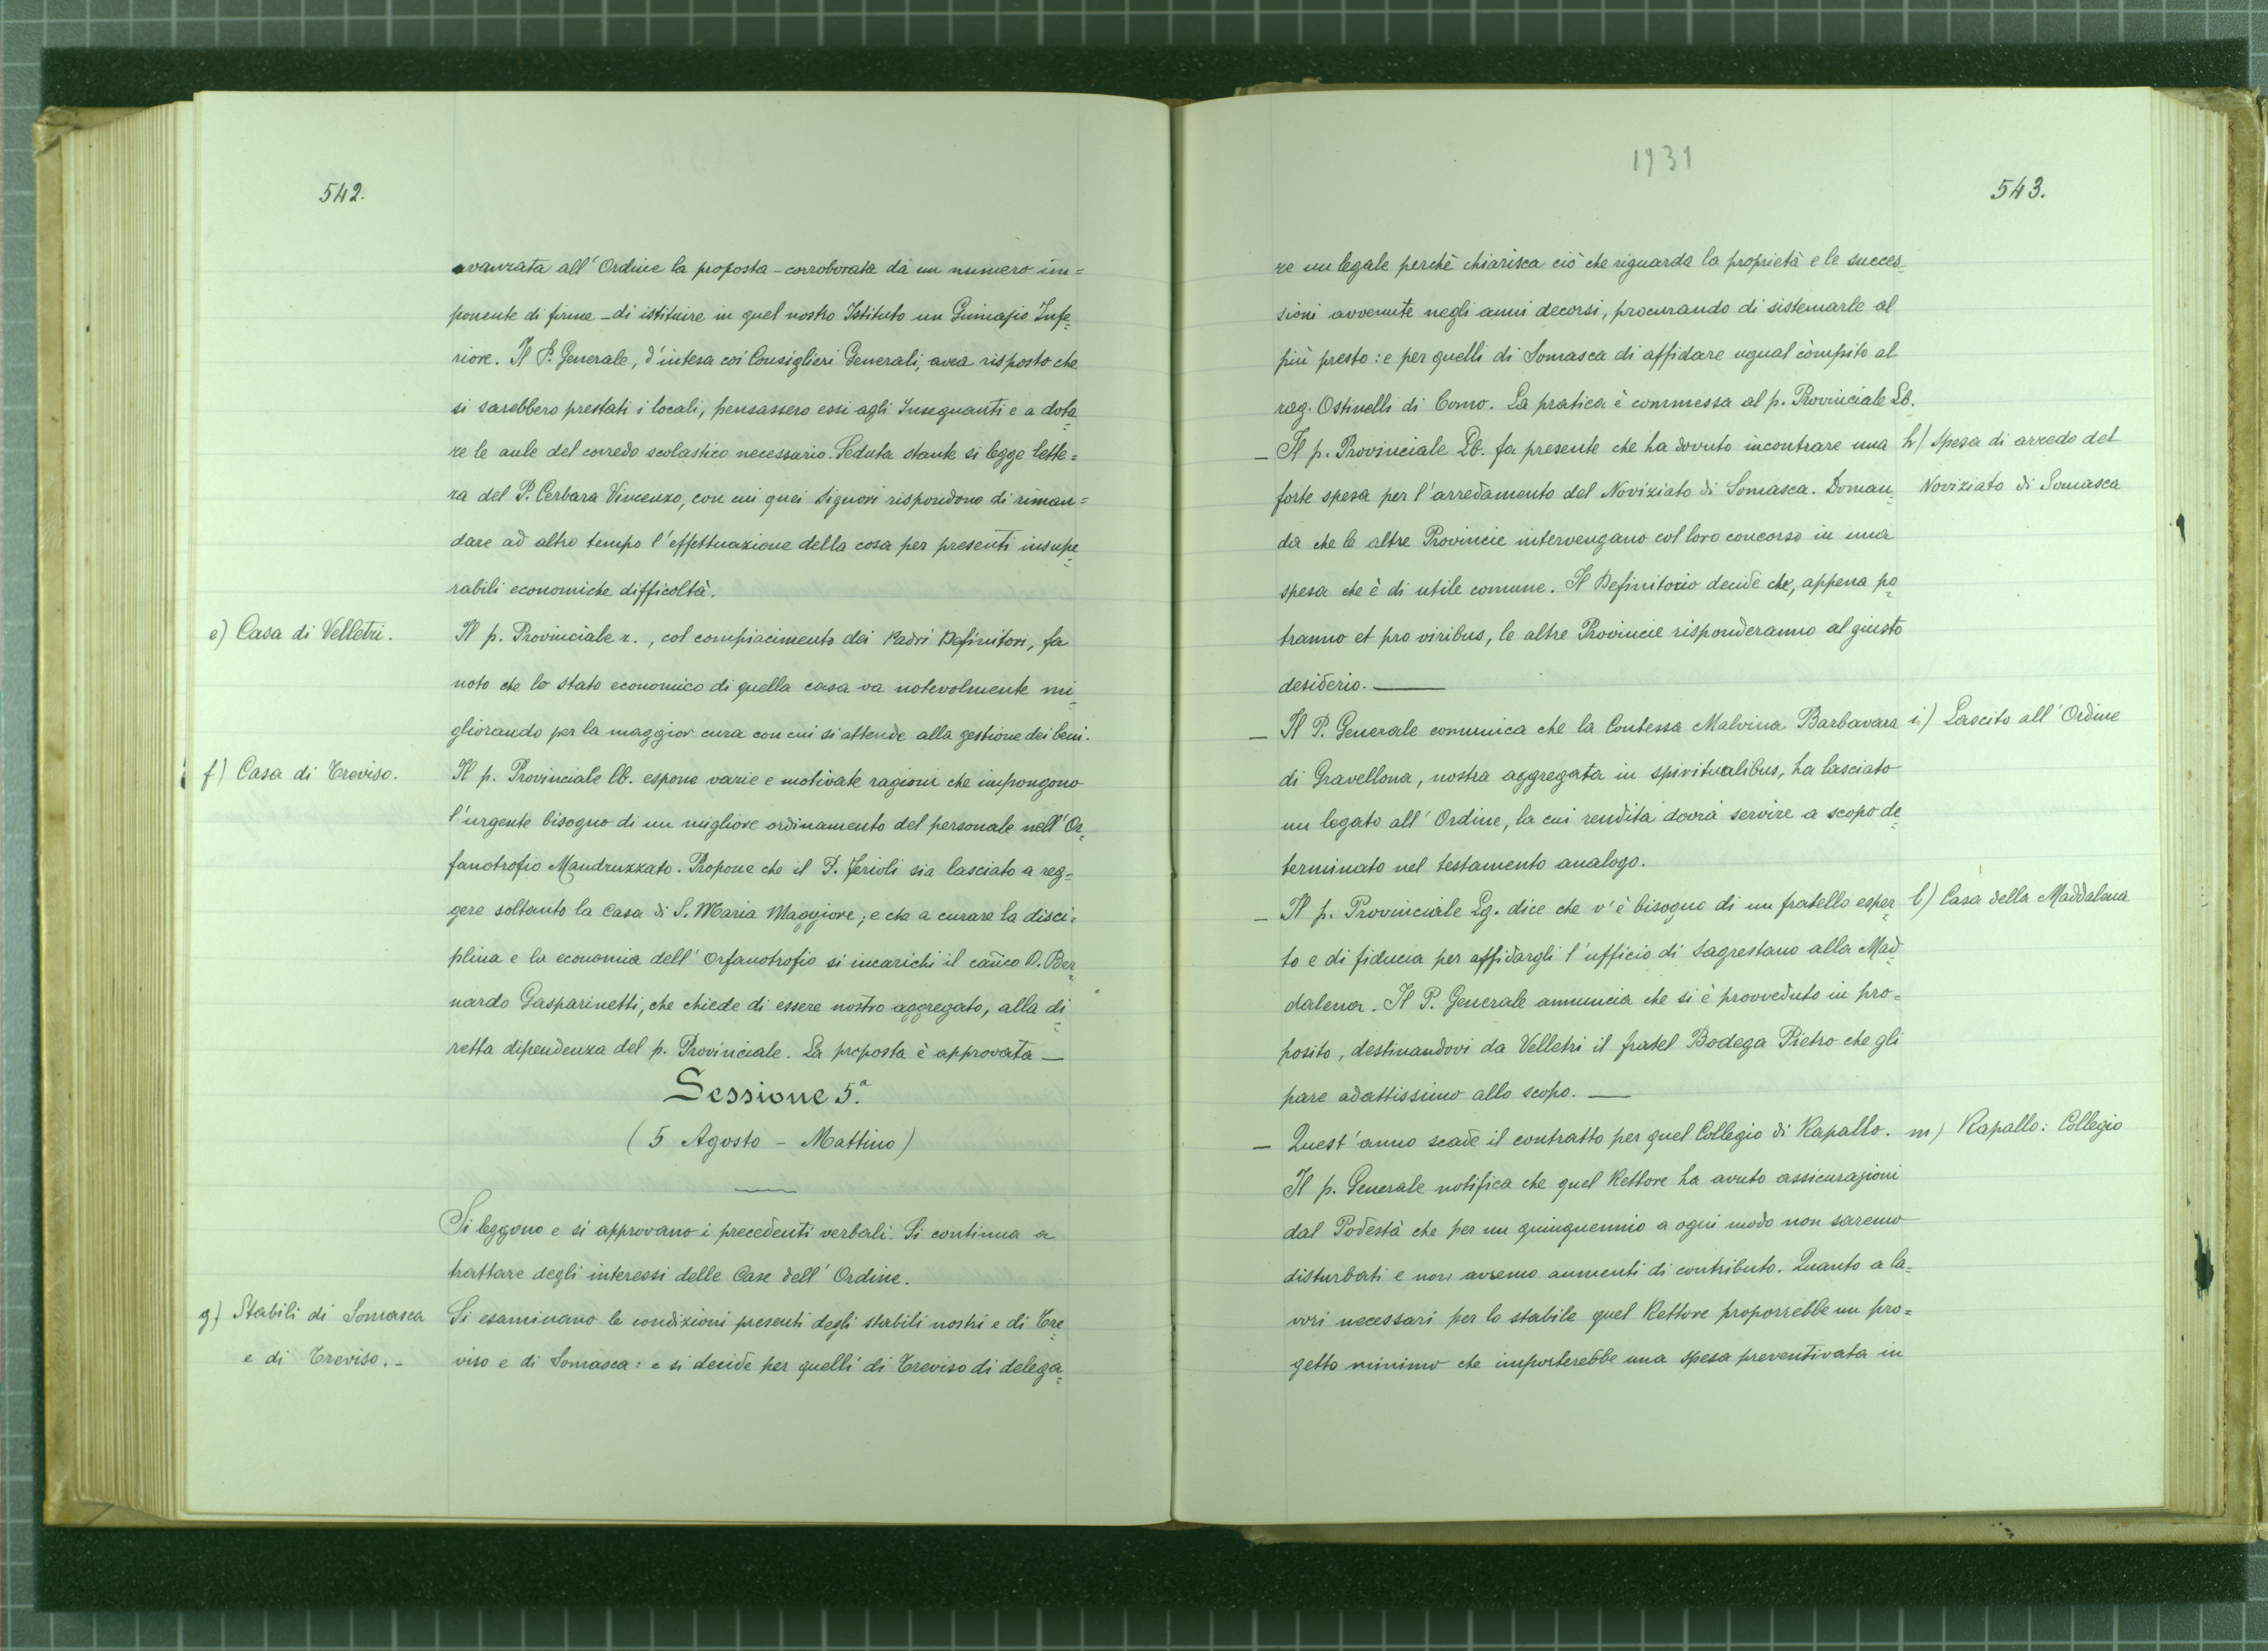 542.
avanzata all'Ordine la proposta - corroborata da un numero im=
ponente di firme - di istituire in quel nostro Istituto un Ginnasio Infe=
riore. Il P. Generale, d'intesa coi Consiglieri Generali, avea risposto che
si sarebbero prestati i locali, pensassero essi agli Insegnanti e a dota=
re le aule del corredo scolastico necessario. Seduta stante si legge lette=
ra del P. Cerbara Vincenzo, con cui quei Signori rispondono di riman=
dare ad altro tempo l'effettuazione della cosa per presenti insupe=
rabili economiche difficoltà.
e) Casa di Velletri.
Il p. Provinciale r., col compiacimento dei Padri Definitori, fa
noto che lo stato economico di quella casa va notevolmente mi=
gliorando per la maggior cura con cui si attende alla gestione dei beni.
f) Casa di Treviso.
Il p. Provinciale lb. espone varie e motivate ragioni che impongono
l'urgente bisogno di un migliore ordinamento del personale nell'Or=
fanotrofio Mandruzzato. Propone che il P. Ferioli sia lasciato a reg=
gere soltanto la Casa di S. Maria Maggiore; e che a curare la disci=
plina e la economia dell'Orfanotrofio si incarichi il cañco D. Ber=
nardo Gasparinetti, che chiede di essere nostro aggregato, alla di=
retta dipendenza del p. Provinciale. La proposta è approvata —
Sessione 5.ª
(5 Agosto - Mattino)
Si leggono e si approvano i precedenti verbali. Si continua a
trattare degli interessi delle Case dell'Ordine.
g) Stabili di Somasca
e di Treviso. -
Si esaminano le condizioni presenti degli stabili nostri e di Tre=
viso e di Somasca: e si decide per quelli di Treviso di delega=
1931
543.
re un legale perchè chiarisca ciò che riguarda la proprietà e le succes=
sioni avvenute negli anni decorsi, procurando di sistemarle al
più presto: e per quelli di Somasca di affidare ugual còmpito al
rag. Ostinelli di Como. La pratica è commessa al p. Provinciale Lb.
— Il p. Provinciale Lb. fa presente che ha dovuto incontrare una
h) Spesa di arredo del
forte spesa per l'arredamento del Noviziato di Somasca. Doman=
Noviziato di Somasca
da che le altre Provincie intervengano col loro concorso in una
spesa che è di utile comune. Il Definitorio decide che, appena po=
tranno et pro viribus, le altre Provincie risponderanno al giusto
desiderio. —
— Il P. Generale comunica che la Contessa Malvina Barbavara
i) Lascito all'Ordine
di Gravellona, nostra aggregata in spiritualibus, ha lasciato
un legato all'Ordine, la cui rendita dovrà servire a scopo de=
terminato nel testamento analogo.
— Il p. Provinciale Lg. dice che v'è bisogno di un fratello esper=
l) Casa della Maddalena
to e di fiducia per affidargli l'ufficio di Sagrestano alla Mad=
dalena. Il P. Generale annuncia che si è provveduto in pro=
posito, destinandovi da Velletri il fratel Bodega Pietro che gli
pare adattissimo allo scopo. —
— Quest'anno scade il contratto per quel Collegio di Rapallo.
m) Rapallo: Collegio
Il p. Generale notifica che quel Rettore ha avuto assicurazioni
dal Podestà che per un quinquennio a ogni modo non saremo
disturbati e non avremo aumenti di contributo. Quanto a la=
vori necessari per lo stabile quel Rettore proporrebbe un pro=
getto minimo che importerebbe una spesa preventivata in